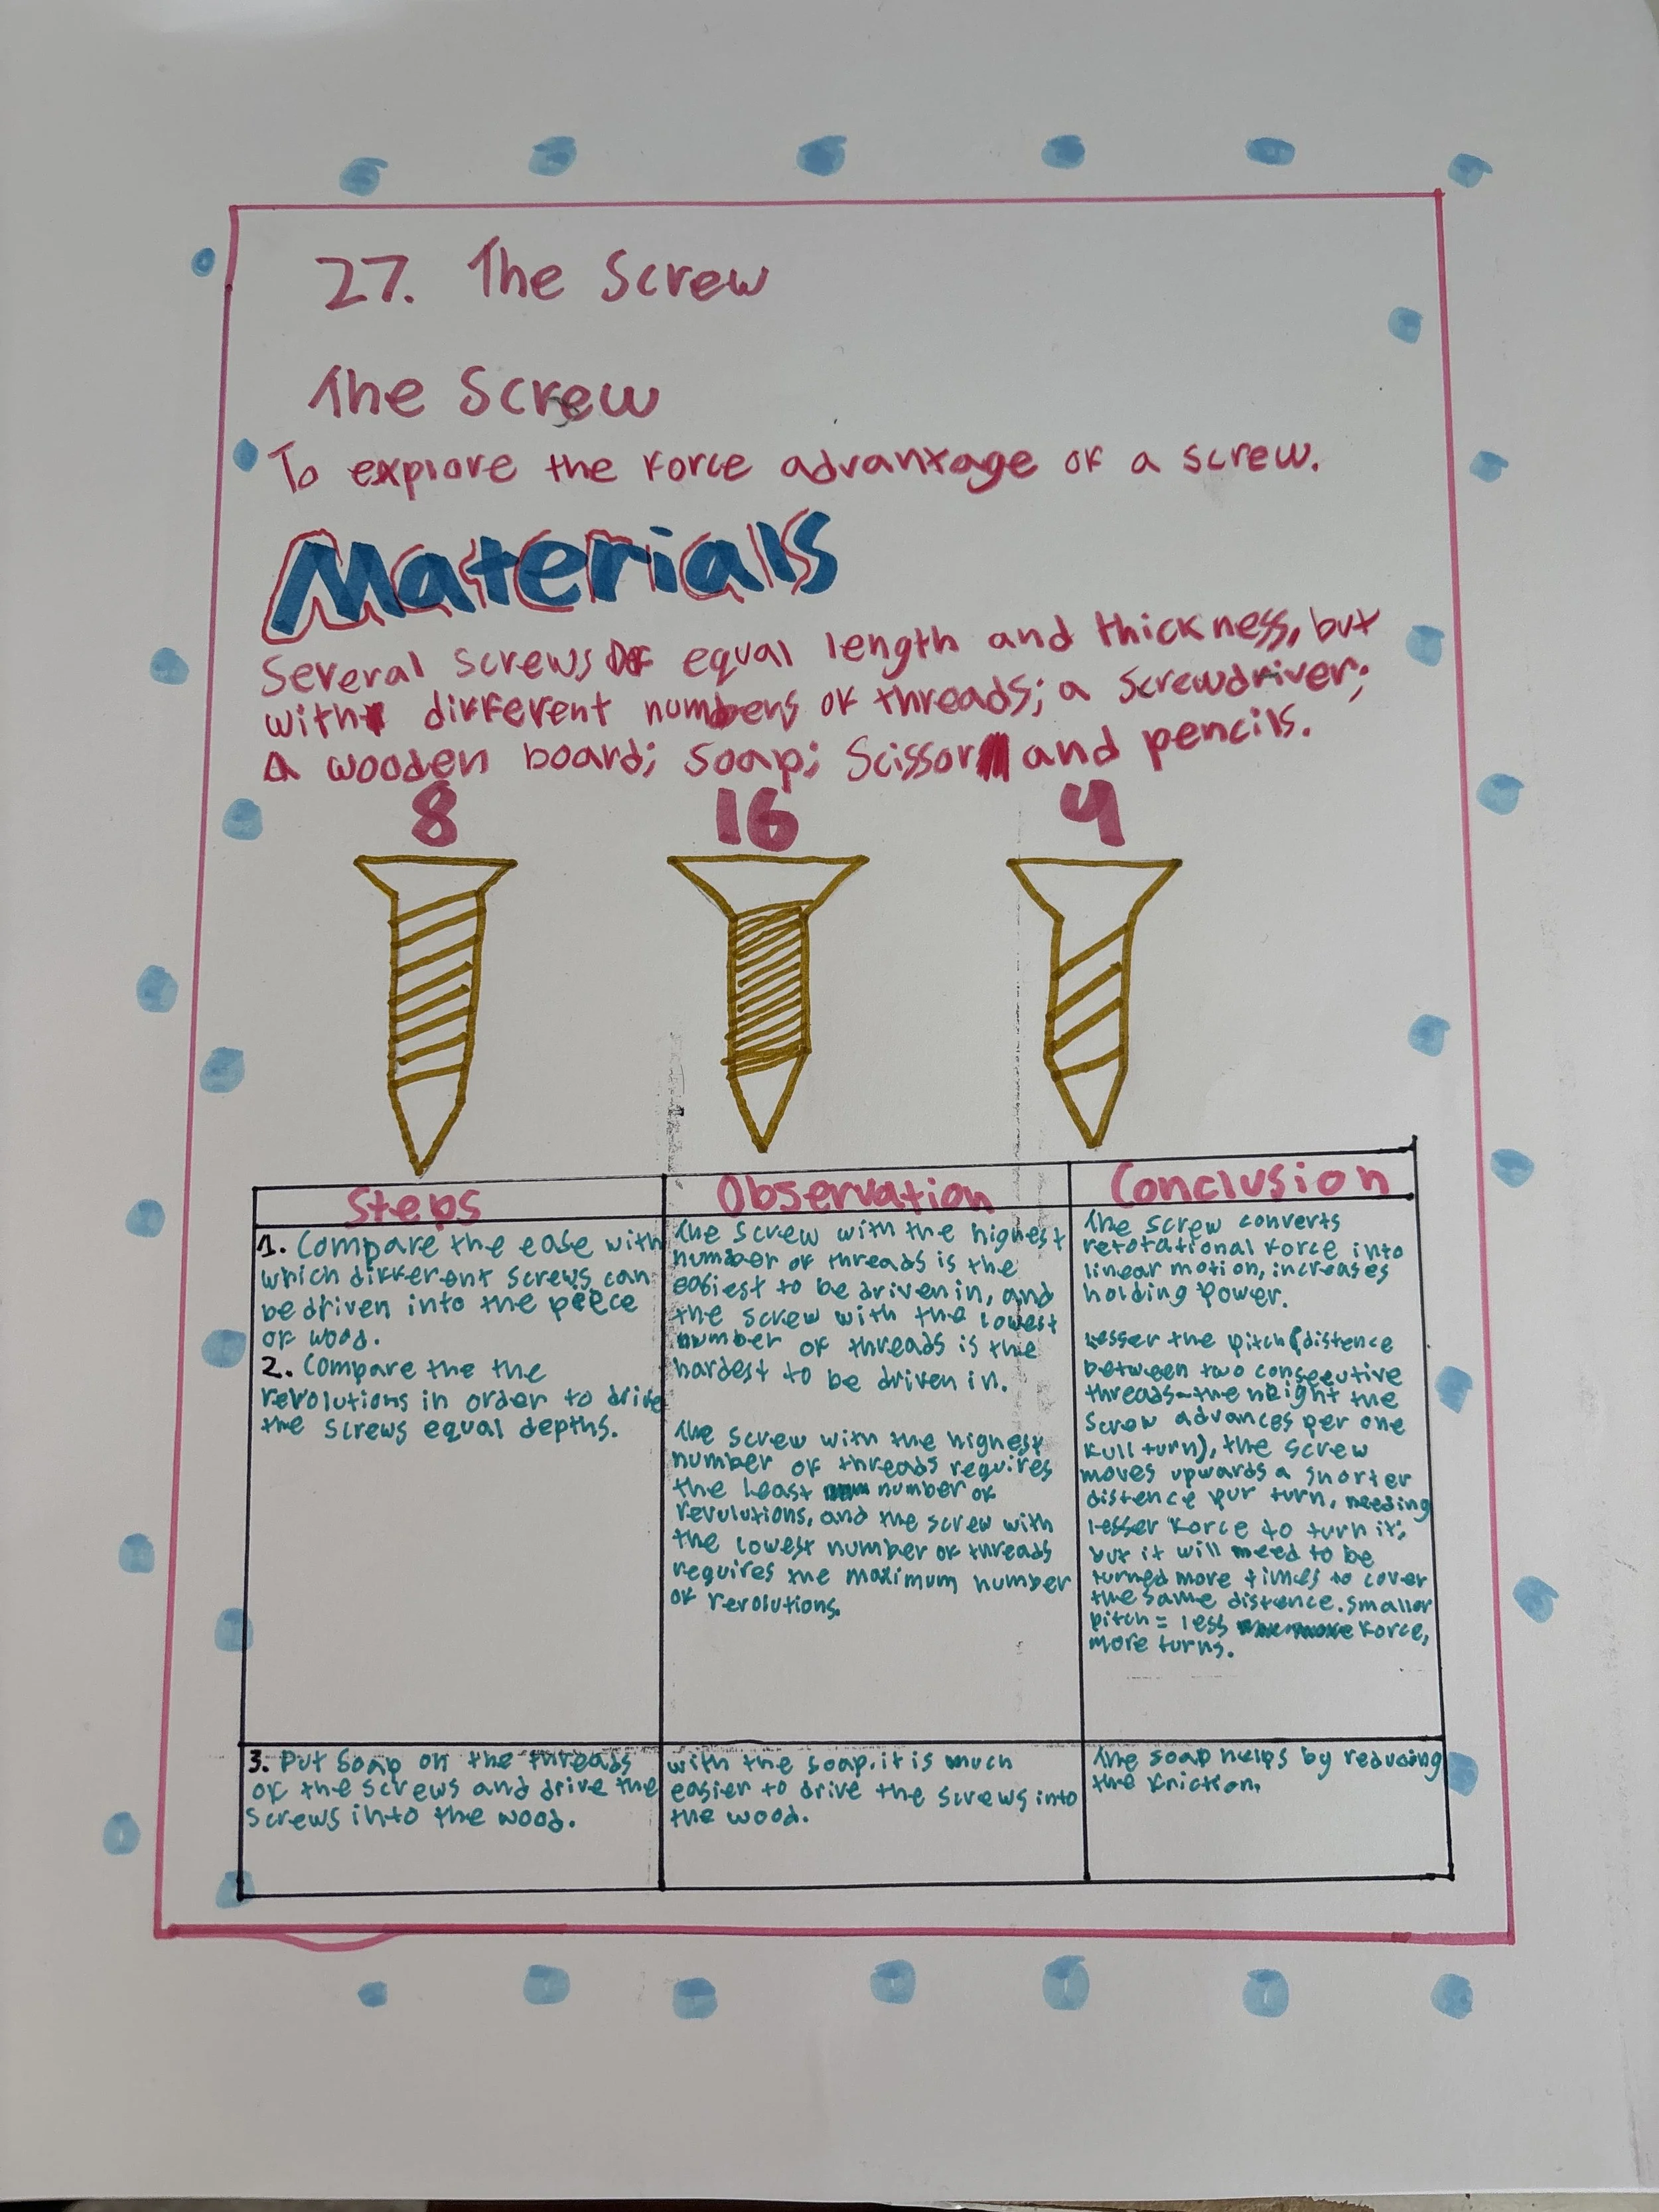 27. The Screw
The Screw
To explore the force advantage of a screw.
Materials
Several screws of equal length and thickness, but
with different numbers of threads; a screwdriver;
A wooden board; soap; scissor and pencils.
8 16 4
Steps
1. Compare the ease with
which different screws can
be driven into the peece
of wood.
2. Compare the the
revolutions in order to drive
the screws equal depths.
Observation
The screw with the highest
number of threads is the
easiest to be driven in, and
the screw with the lowest
number of threads is the
hardest to be driven in.
The screw with the highest
number of threads requires
the least number of
revulutions, and the screw with
the lowest number of threads
requires the maximum number
of revolutions.
Conclusion
The screw converts
retotational force into
linear motion, increases
holding power.
Lesser the pitch (distence
between two consecutive
threads-the height the
screw advances per one
full turn), the screw
moves upwards a shorter
distence pur turn, needing
lesser force to turn it;
but it will need to be
turned more times to cover
the same distence. smaller
pitch = less force,
more turns.
3. Put soap on the threads
of the screws and drive the
screws into the wood.
with the soap, it is much
easier to drive the screws into
the wood.
The soap helps by reducing
the friction.